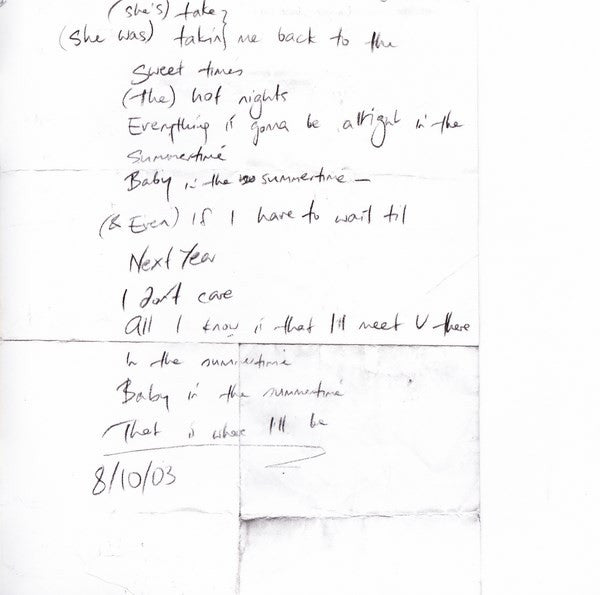 (she's) take
(she was) takin me back to the
Sweet times
(the) hot nights
Everything is gonna be allright in the
Summertime
Baby in the summertime —
(& Even) if I have to wait til
Next Year
I don't care
All I know is that I'll meet U there
In the summertime
Baby in the summertime
That is where I'll be
8/10/03